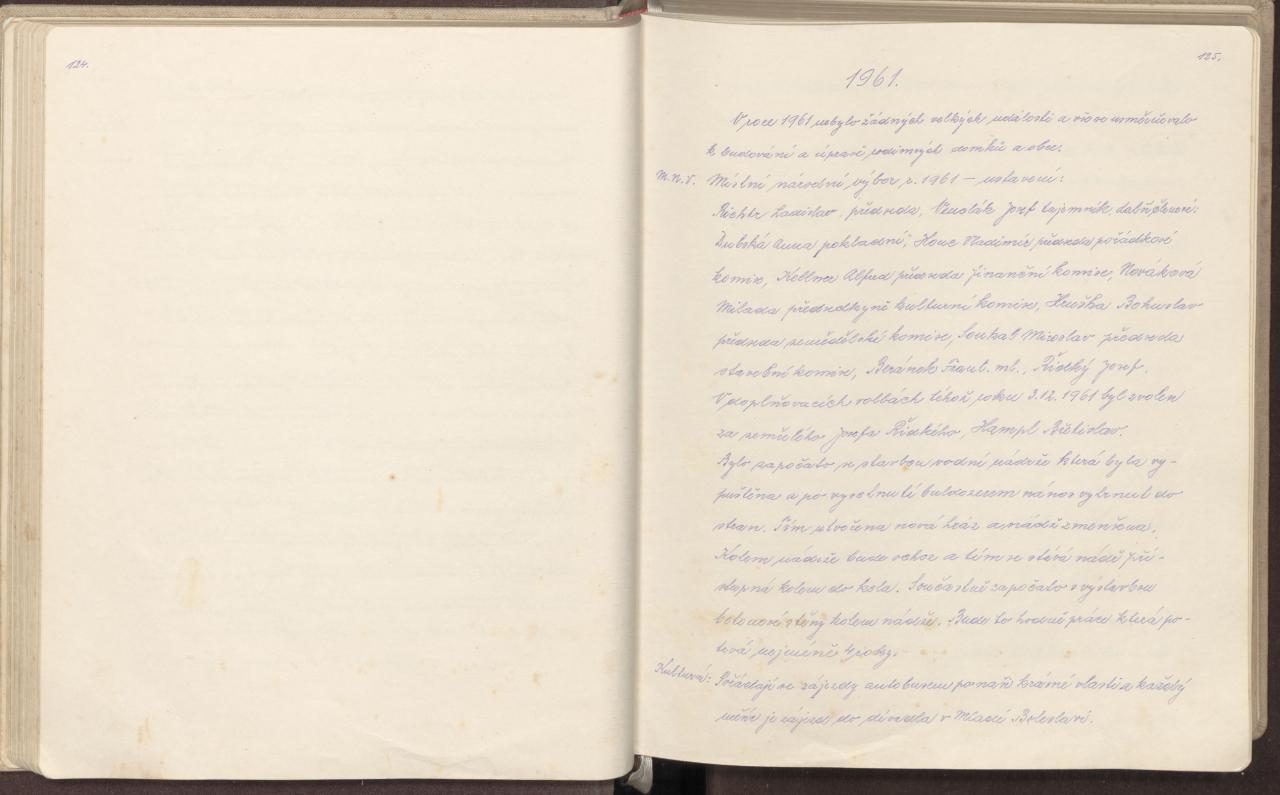 124.
125.
1961.
V roce 1961 nebylo žádných velkých událostí a vše se usměrňovalo
k budování a úpravě rodinných domků a obce.
M.N.V. Místní národní výbor r. 1961 — ustavení:
Richtr Ladislav, předseda, Josef tajemník, další členové:
Dubská Anna pokladní, Houc Vladimír předseda pořádkové
komise, Kollner Alfred předseda finanční komise, Nováková
Milada předsedkyně kulturní komise, Hruška Bohuslav
předseda zemědělské komise, Soukal Miroslav předseda
stavební komise, Beránek Frant. ml., Řídký Josef.
V doplňovacích volbách téhož roku 3.12.1961 byl zvolen
za zemřelého Josefa Řídkého, Hampl Břetislav.
Bylo započato se stavbou vodní nádrže která byla vy-
puštěna a po vyschnutí buldozerem nános vyhrnut do
stran. Tím utvořena nová hráz a nádrž zmenšena.
Kolem nádrže bude ochoz a tím se stává nádrž pří-
stupná kolem do kola. Současně započato s výstavbou
betonové stěny kolem nádrže. Bude to hodně práce která po-
trvá nejméně 4 roky.
Kulturá: Pořádají se zájezdy autobusem po naší krásné vlasti a každý
měsíc je zájezd do divadla v Mladé Boleslavi.